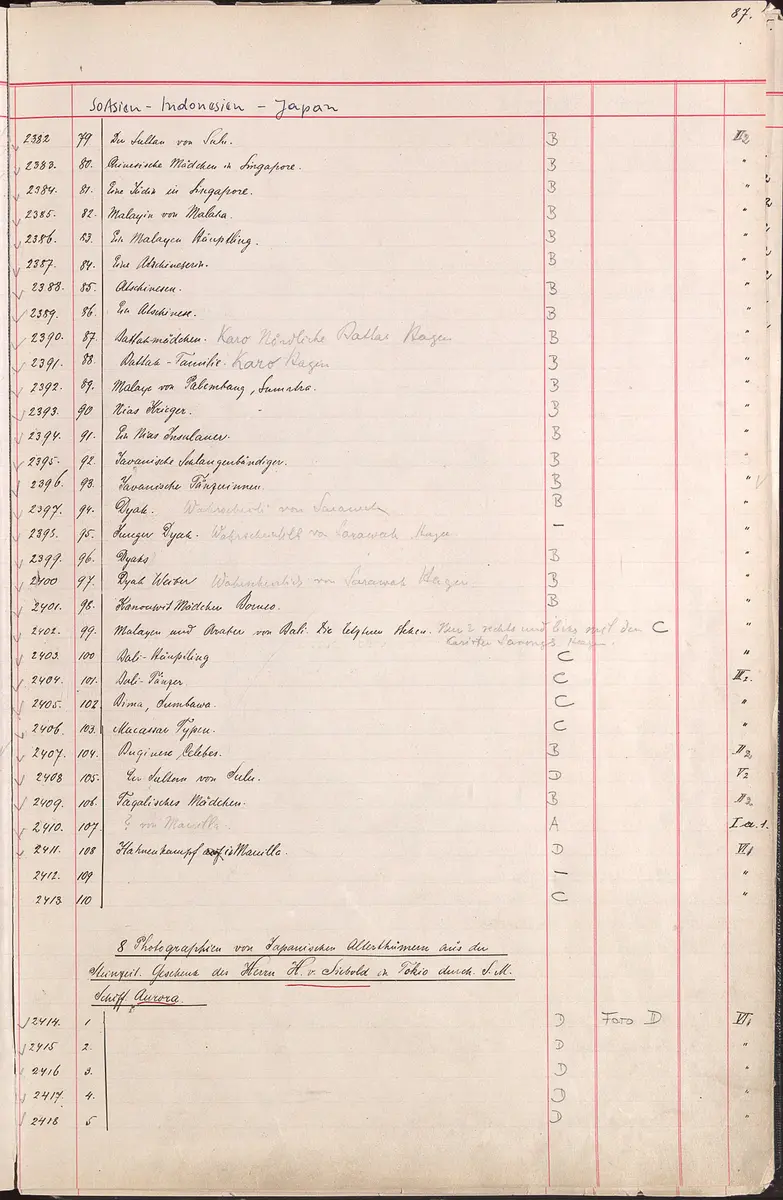 87.
SOAsien - Indonesien - Japan
2382 79 Der Sultan von Sulu. B II2
2383. 80. Chinesische Mädchen in Singapore. B "
2384. 81. Eine Jüdin in Singapore. B "
2385. 82. Malayin von Malaka. B "
2386. 83. Ein Malayen Häuptling. B "
2387. 84. Eine Atschineserin. B "
2388. 85. Atschinesen. B "
2389. 86. Ein Atschinese. B "
2390. 87. Battakmädchen. Karo Nördliche Battas Hagen B "
2391. 88. Battak-Familie. Karo Hagen B "
2392. 89. Malaye von Palembang, Sumatra. B "
2393. 90 Nias Krieger. B "
2394. 91. Ein Nias Insulaner. B "
2395. 92. Javanische Schlangenbändiger. B "
2396. 93. Javanische Tänzerinnen. B "
2397. 94. Dyak. Wahrscheinl. von Sarawak B "
2398. 95. Junger Dyak. Wahrscheinlich von Sarawak Hagen – "
2399. 96. Dyaks B "
2400 97. Dyak Weiber Wahrscheinlich von Sarawak Hagen B "
2401. 98. Kanowit Mädchen Borneo. B "
2402. 99. Malayen und Araber von Bali. Die letzteren stehen. Nur 2 rechts und links mit den C "
karirten Sarongs Hagen.
2403. 100 Bali-Häuptling C "
2404. 101. Bali-Tänzer C III2.
2405. 102 Bima, Sumbawa. C "
2406. 103. Macassar Typen. C "
2407. 104. Buginese, Celebes. B II2
2408 105. Der Sultan von Sulu. D V2
2409. 106. Tagalisches Mädchen. B II2
2410. 107. ? von Manilla. A I a.1.
2411. 108 Hahnenkampf in Manilla. D VI1
2412. 109 – "
2413 110 C "
8 Photographien von Japanischen Alterthümern aus der
Steinzeit. Geschenk des Herrn H. v. Siebold in Tokio durch S. M.
Schiff Aurora.
2414. 1 D Foto D VI1
2415 2. D "
2416 3. D "
2417 4. D "
2418 5 D "